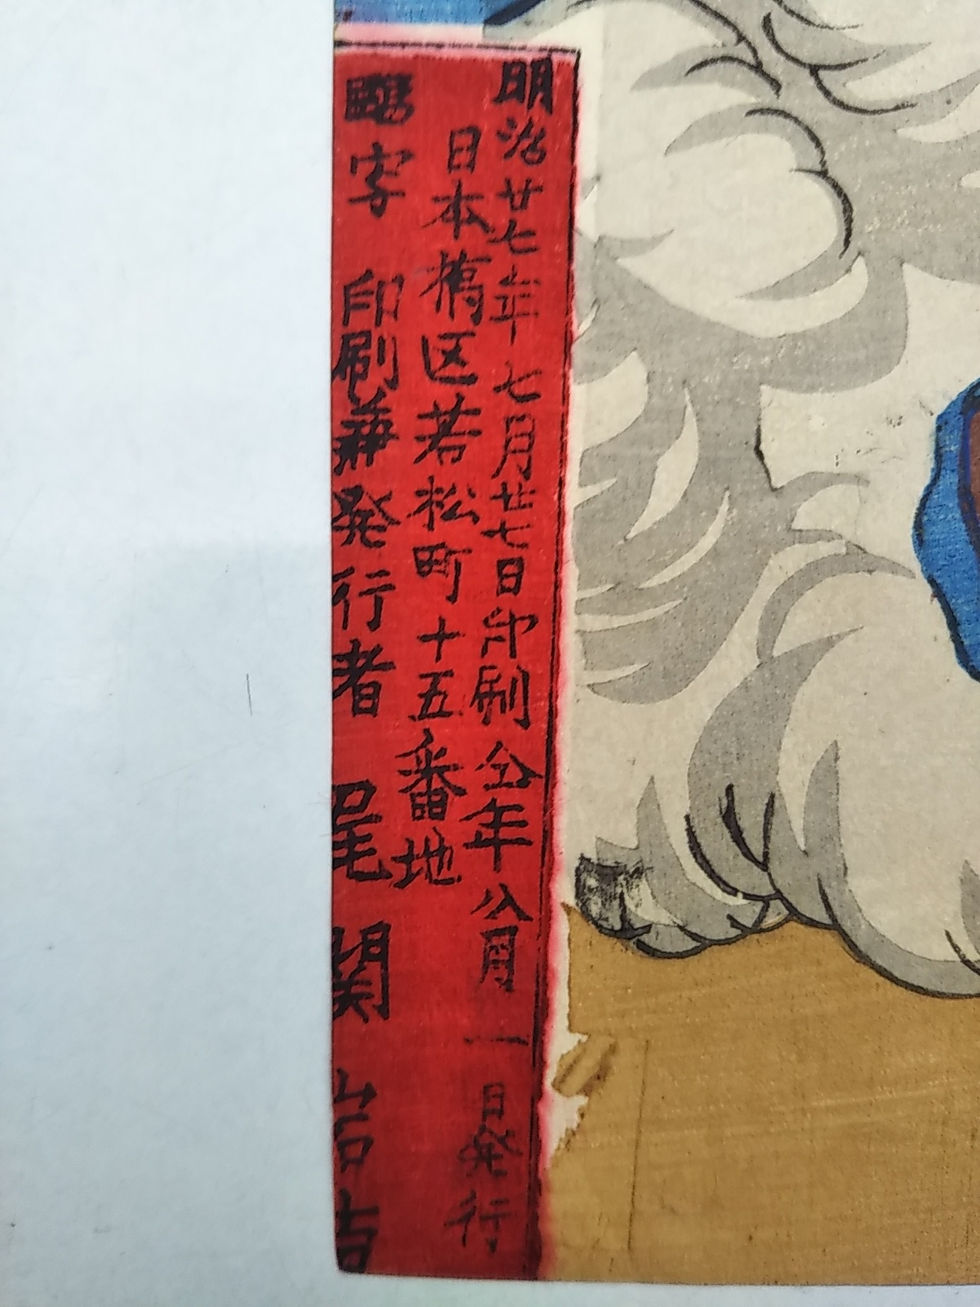 明治廿七年七月廿七日印刷仝年八月一日発行
日本橋区若松町十五番地
印刷兼発行者 尾関岩吉